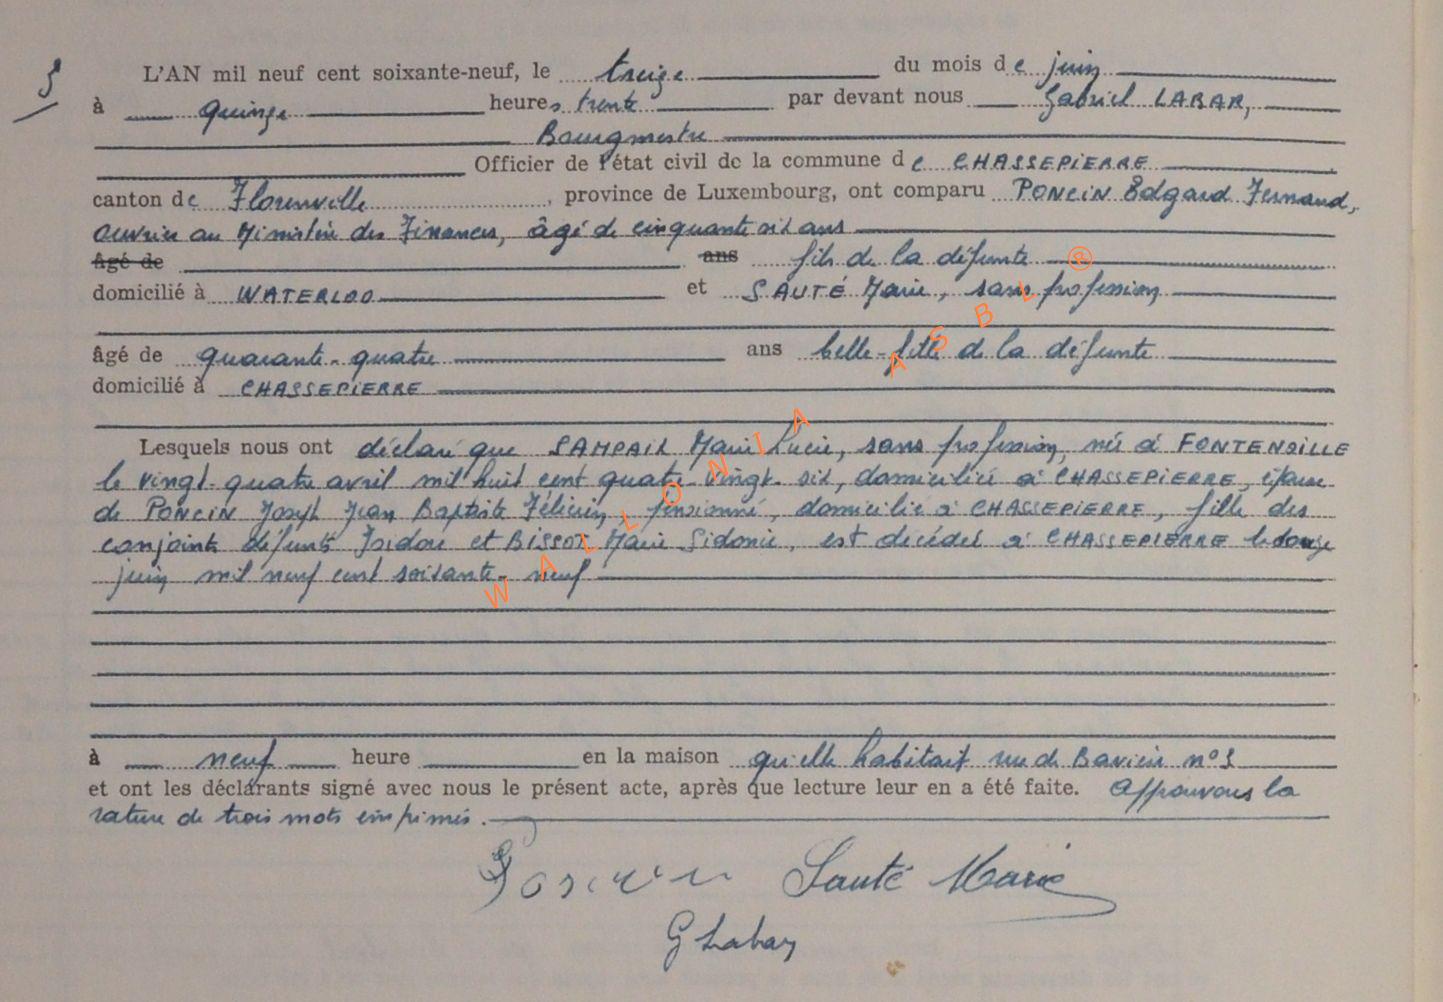 5
L'AN mil neuf cent soixante-neuf, le treize du mois de juin
à quinze heures trente par devant nous Gabriel LABAR,
Bourgmestre
Officier de l'état civil de la commune de CHASSEPIERRE
canton de Florenville, province de Luxembourg, ont comparu PONCIN Edgard Fernand,
ouvrier au Ministère des Finances, âgé de cinquante six ans
âgé de ans fils de la défunte
domicilié à WATERLOO et SAUTÉ Marie, sans profession
âgé de quarante-quatre ans belle-fille de la défunte
domicilié à CHASSEPIERRE
Lesquels nous ont déclaré que SAMPAIX Marie Lucie, sans profession, née à FONTENOILLE
le vingt-quatre avril mil huit cent quatre-vingt-six, domiciliée à CHASSEPIERRE, épouse
de PONCIN Joseph Jean Baptiste Félicien, pensionné, domicilié à CHASSEPIERRE, fille des
conjoints défunts Isidore et BISSOT Marie Sidonie, est décédée à CHASSEPIERRE le douze
juin mil neuf cent soixante-neuf
à neuf heure en la maison qu'elle habitait rue de Bavière n°
et ont les déclarants signé avec nous le présent acte, après que lecture leur en a été faite. Approuvons la
rature de trois mots imprimés.
Poncin Sauté Marie
G Labar
WALLONIA ASBL ®